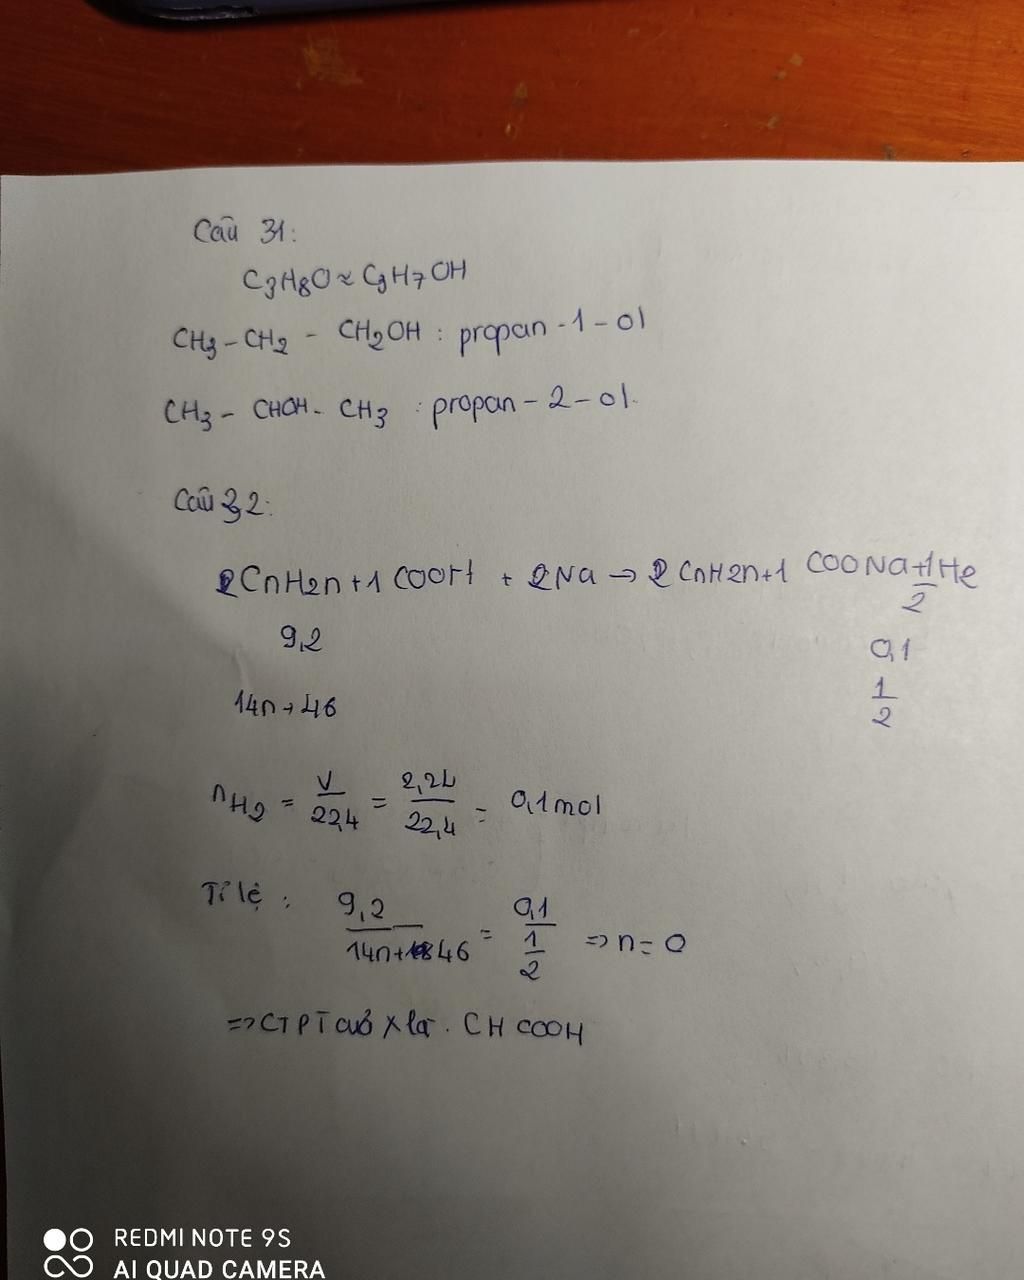 Câu 31:
C3H8O ~ C3H7OH
CH3 - CH2 - CH2OH : propan - 1 - ol
CH3 - CHOH - CH3 : propan - 2 - ol.
Câu 32:
2CnH2n+1 COOH + 2Na → 2CnH2n+1 COONa + 1/2 H2
9,2 0,1
14n + 46 1/2
nH2 = V/22,4 = 2,24/22,4 = 0,1 mol
Tỉ lệ : 9,2/14n+46 = 0,1/1/2 => n = 0
=> CTPT của X là . CH COOH
REDMI NOTE 9S
AI QUAD CAMERA